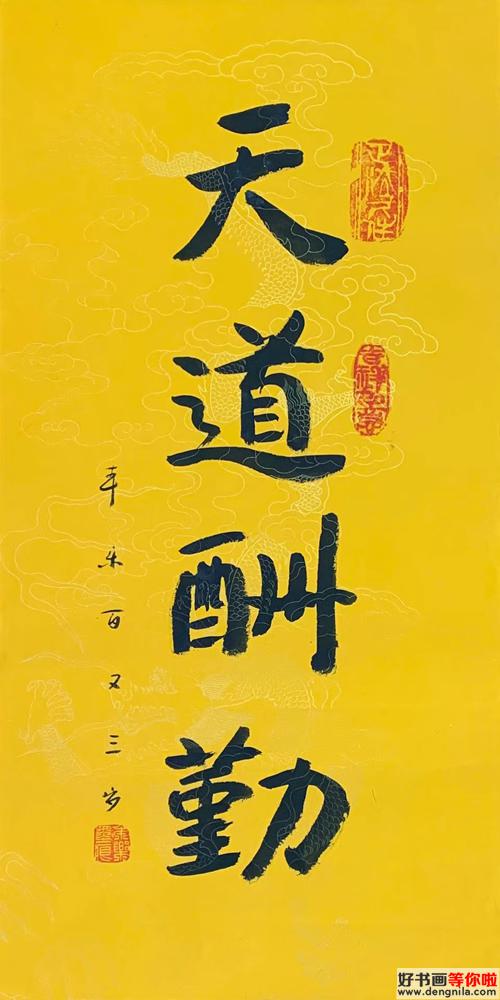 天道酬勤
乐百又三岁
好书画等你啦
www.dengnila.com